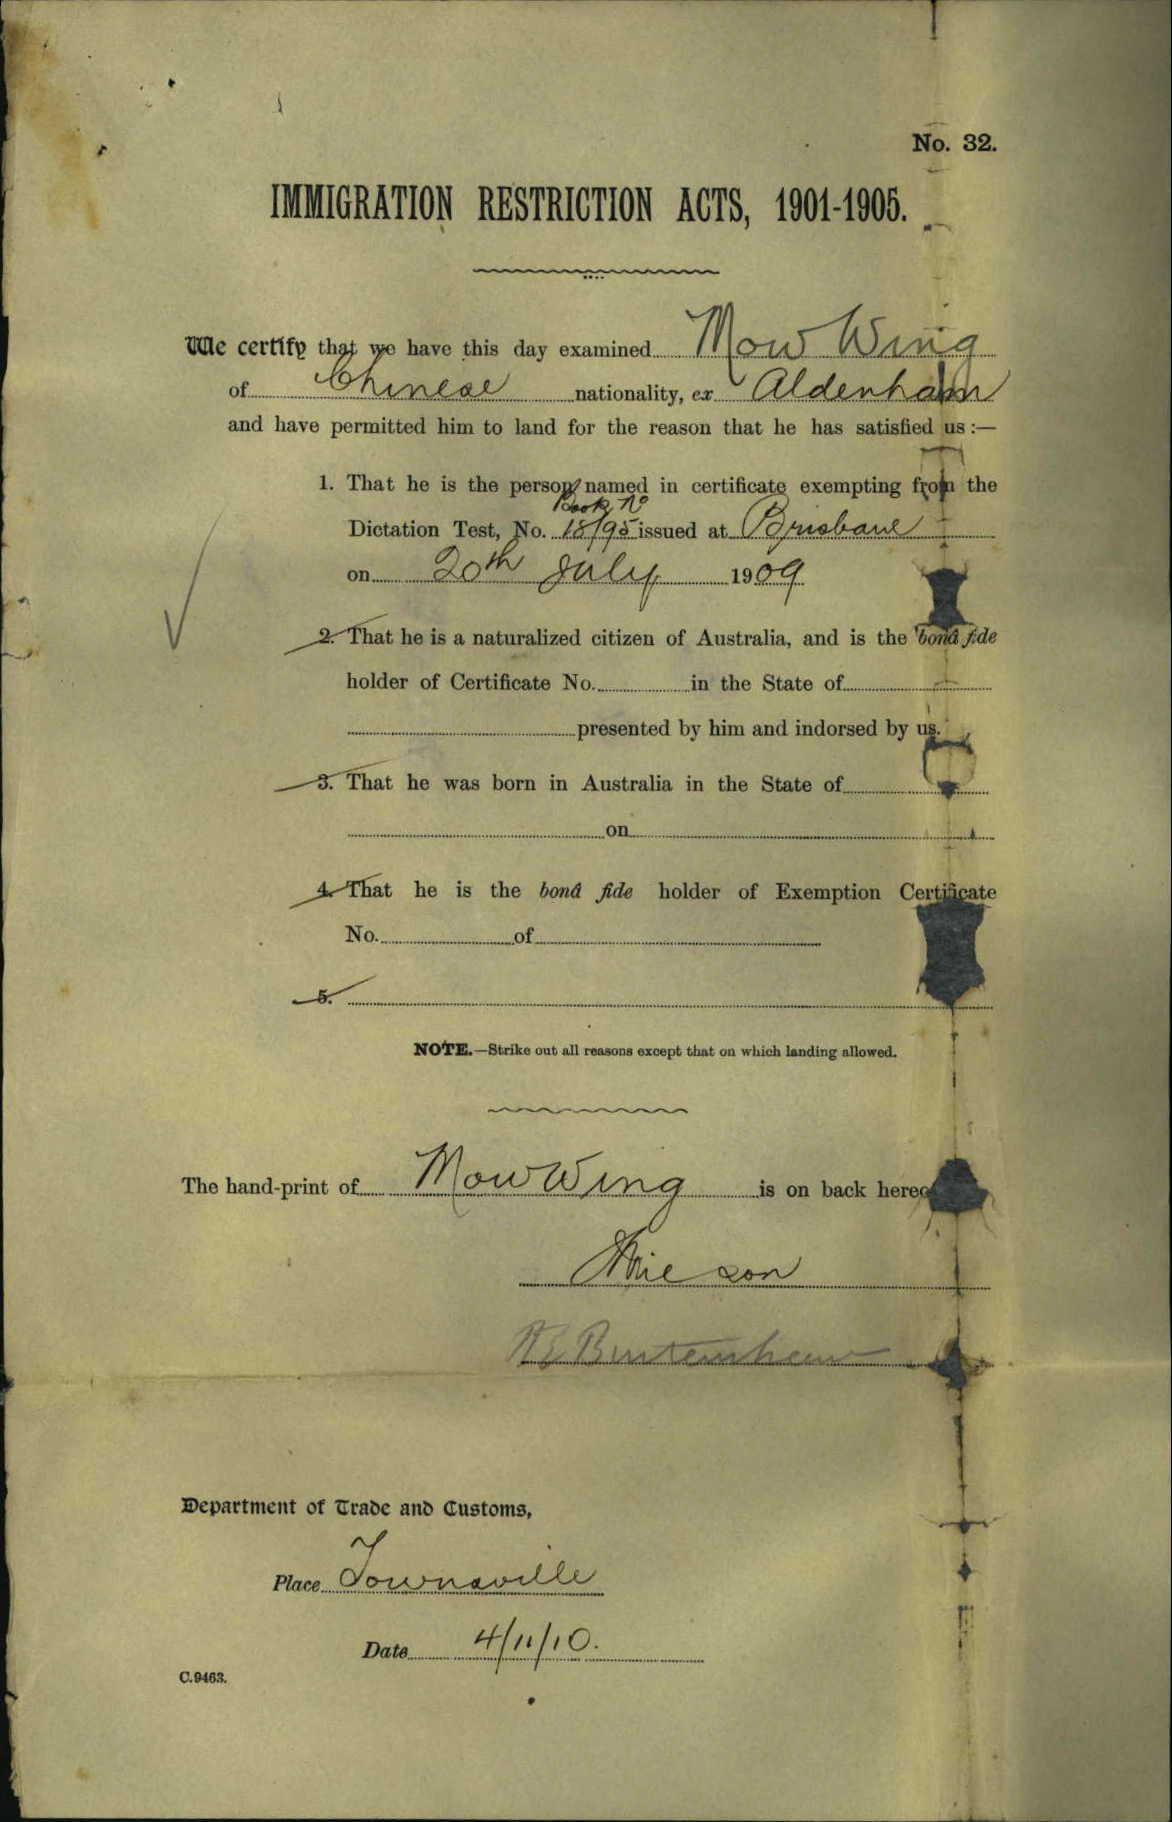 No. 32.
IMMIGRATION RESTRICTION ACTS, 1901-1905.
We certify that we have this day examined Mow Wing
of Chinese nationality, ex Aldenham
and have permitted him to land for the reason that he has satisfied us :—
1. That he is the person named in certificate exempting from the
Book No
Dictation Test, No. 18/95 issued at Brisbane
on 20th July 1909
2. That he is a naturalized citizen of Australia, and is the bonâ fide
holder of Certificate No. in the State of
presented by him and indorsed by us.
3. That he was born in Australia in the State of
on
4. That he is the bonâ fide holder of Exemption Certificate
No. of
5.
NOTE.—Strike out all reasons except that on which landing allowed.
The hand-print of Mow Wing is on back hereo
Department of Trade and Customs,
Place Townsville
Date 4/11/10.
C.9463.